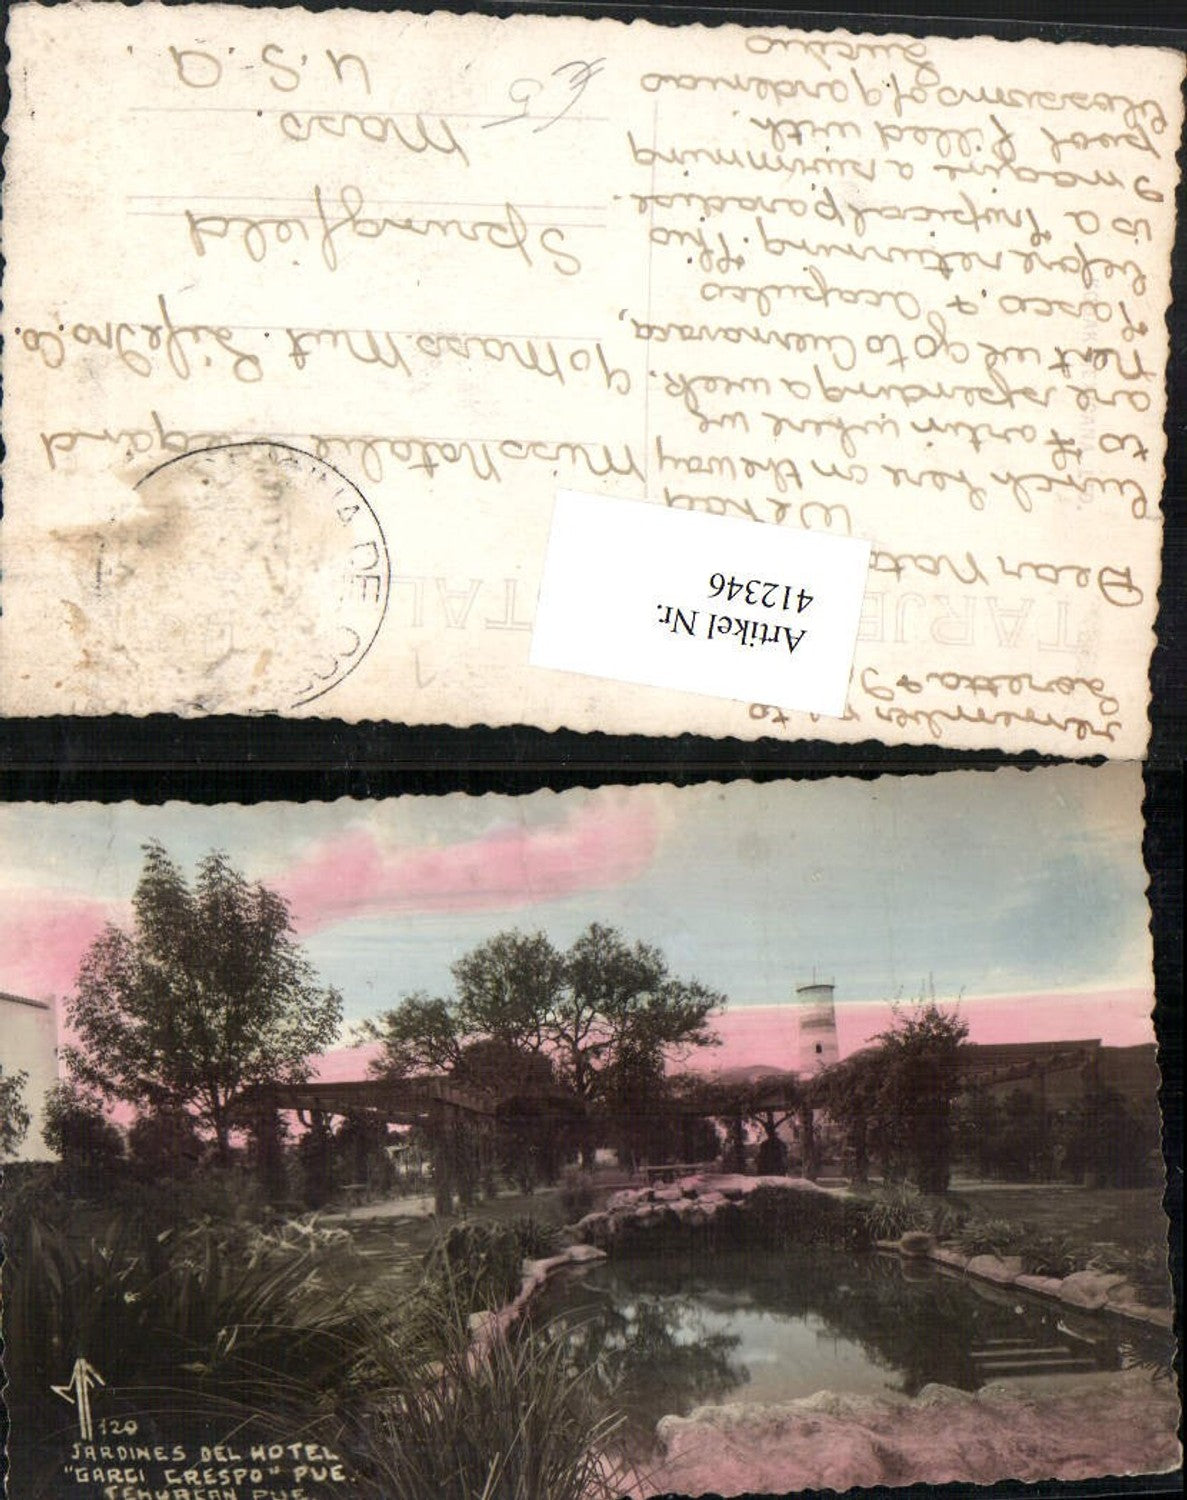 TARJE TAL
Dear Nata
We had
lunch here on the way
to Fortin where we
are spending a week.
Next we go to Cuernavaca,
Taxco, &amp; Acapulco
before returning. This
is a tropical paradise.
Imagine a swimming
pool filled with
blossoms of gardenias
remember me to
Loretta &amp;
Miss Natalie
c/o Mass. Mut. Life Ins. Co.
Springfield
Mass.
U.S.A.
€5
INA DE CO
Artikel Nr.
412346
120
JARDINES DEL HOTEL
"GARCI CRESPO" PUE.
TEHUACAN PUE.